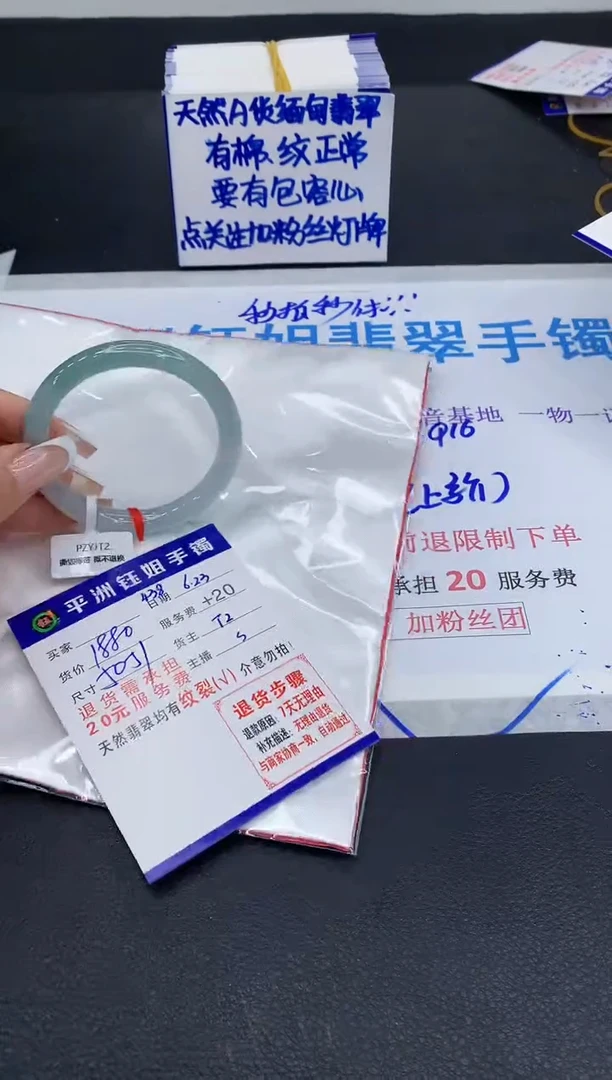 天然A货缅甸翡翠
有棉、纹正常
要有包容心
点关注加粉丝灯牌
翡翠手镯
音基地 一物一
916
前退限制下单
承担 20 服务费
加粉丝团
PZYJT2
平洲钰姐手镯
买家 438 日期 6.23
货价 1880 服务费 +20
尺寸 货主 T2
主播 S
退货需承担
20元服务费
天然翡翠均有纹裂(√) 介意勿拍!
退货步骤
退款原因：7天无理由
补充描述：无理由退货
与商家协商一致，自动通过